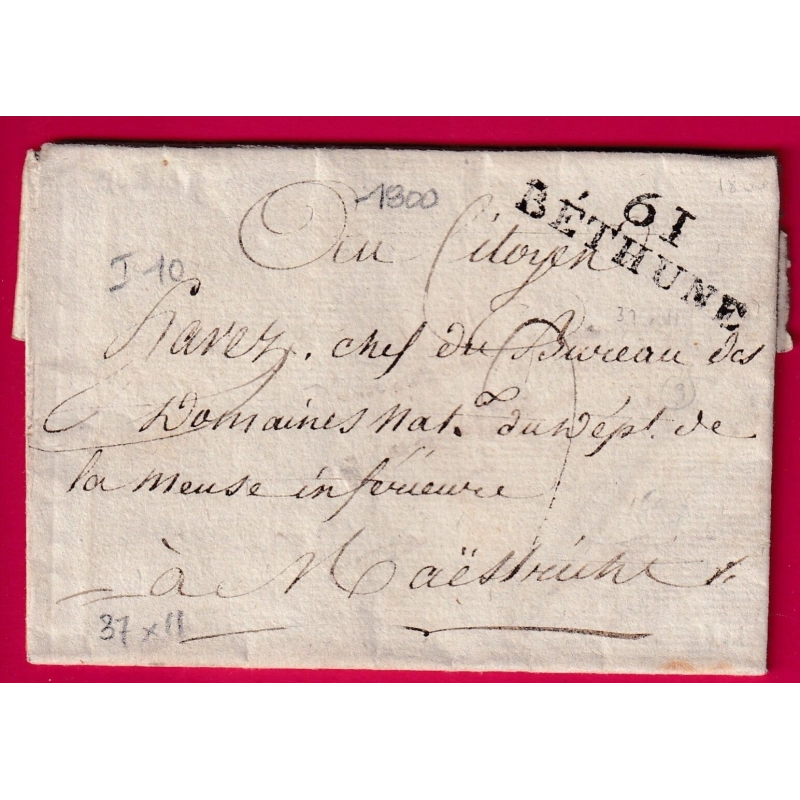 1800
61
BÉTHUNE
Au Citoyen
J 10
37 x 11
Havez, chef du Bureau des
Domaines Nat.aux du Dépt. de
la meuse inférieure
à Maëstricht
37 x 11